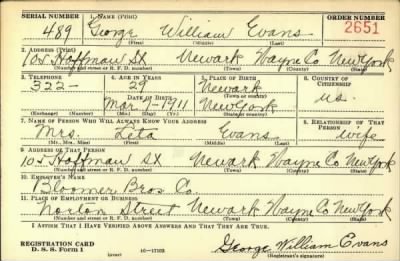 SERIAL NUMBER 1. NAME (Print) ORDER NUMBER
489 George William Evans 2651
(First) (Middle) (Last)
2. ADDRESS (Print)
105 Hoffman St Newark Wayne Co New York
(Number and street or R. F. D. number) (Town) (County) (State)
3. TELEPHONE 4. AGE IN YEARS 5. PLACE OF BIRTH 6. COUNTRY OF CITIZENSHIP
322- 29 Newark
DATE OF BIRTH (Town or county)
Mar 1911 New York U.S.
(Exchange) (Number) (Mo.) (Day) (Yr.) (State or country)
7. NAME OF PERSON WHO WILL ALWAYS KNOW YOUR ADDRESS 8. RELATIONSHIP OF THAT PERSON
Mrs. Evans wife
(Mr., Mrs., Miss) (First) (Middle) (Last)
9. ADDRESS OF THAT PERSON
105 Hoffman St Newark Wayne Co New York
(Number and street or R. F. D. number) (Town) (County) (State)
10. EMPLOYER'S NAME
Bloomer Bros Co.
11. PLACE OF EMPLOYMENT OR BUSINESS
Norton Street Newark Wayne Co New York
(Number and street or R. F. D. number) (Town) (County) (State)
I AFFIRM THAT I HAVE VERIFIED ABOVE ANSWERS AND THAT THEY ARE TRUE.
REGISTRATION CARD
D. S. S. Form 1 (over) 16-17105 George William Evans
(Registrant's signature)